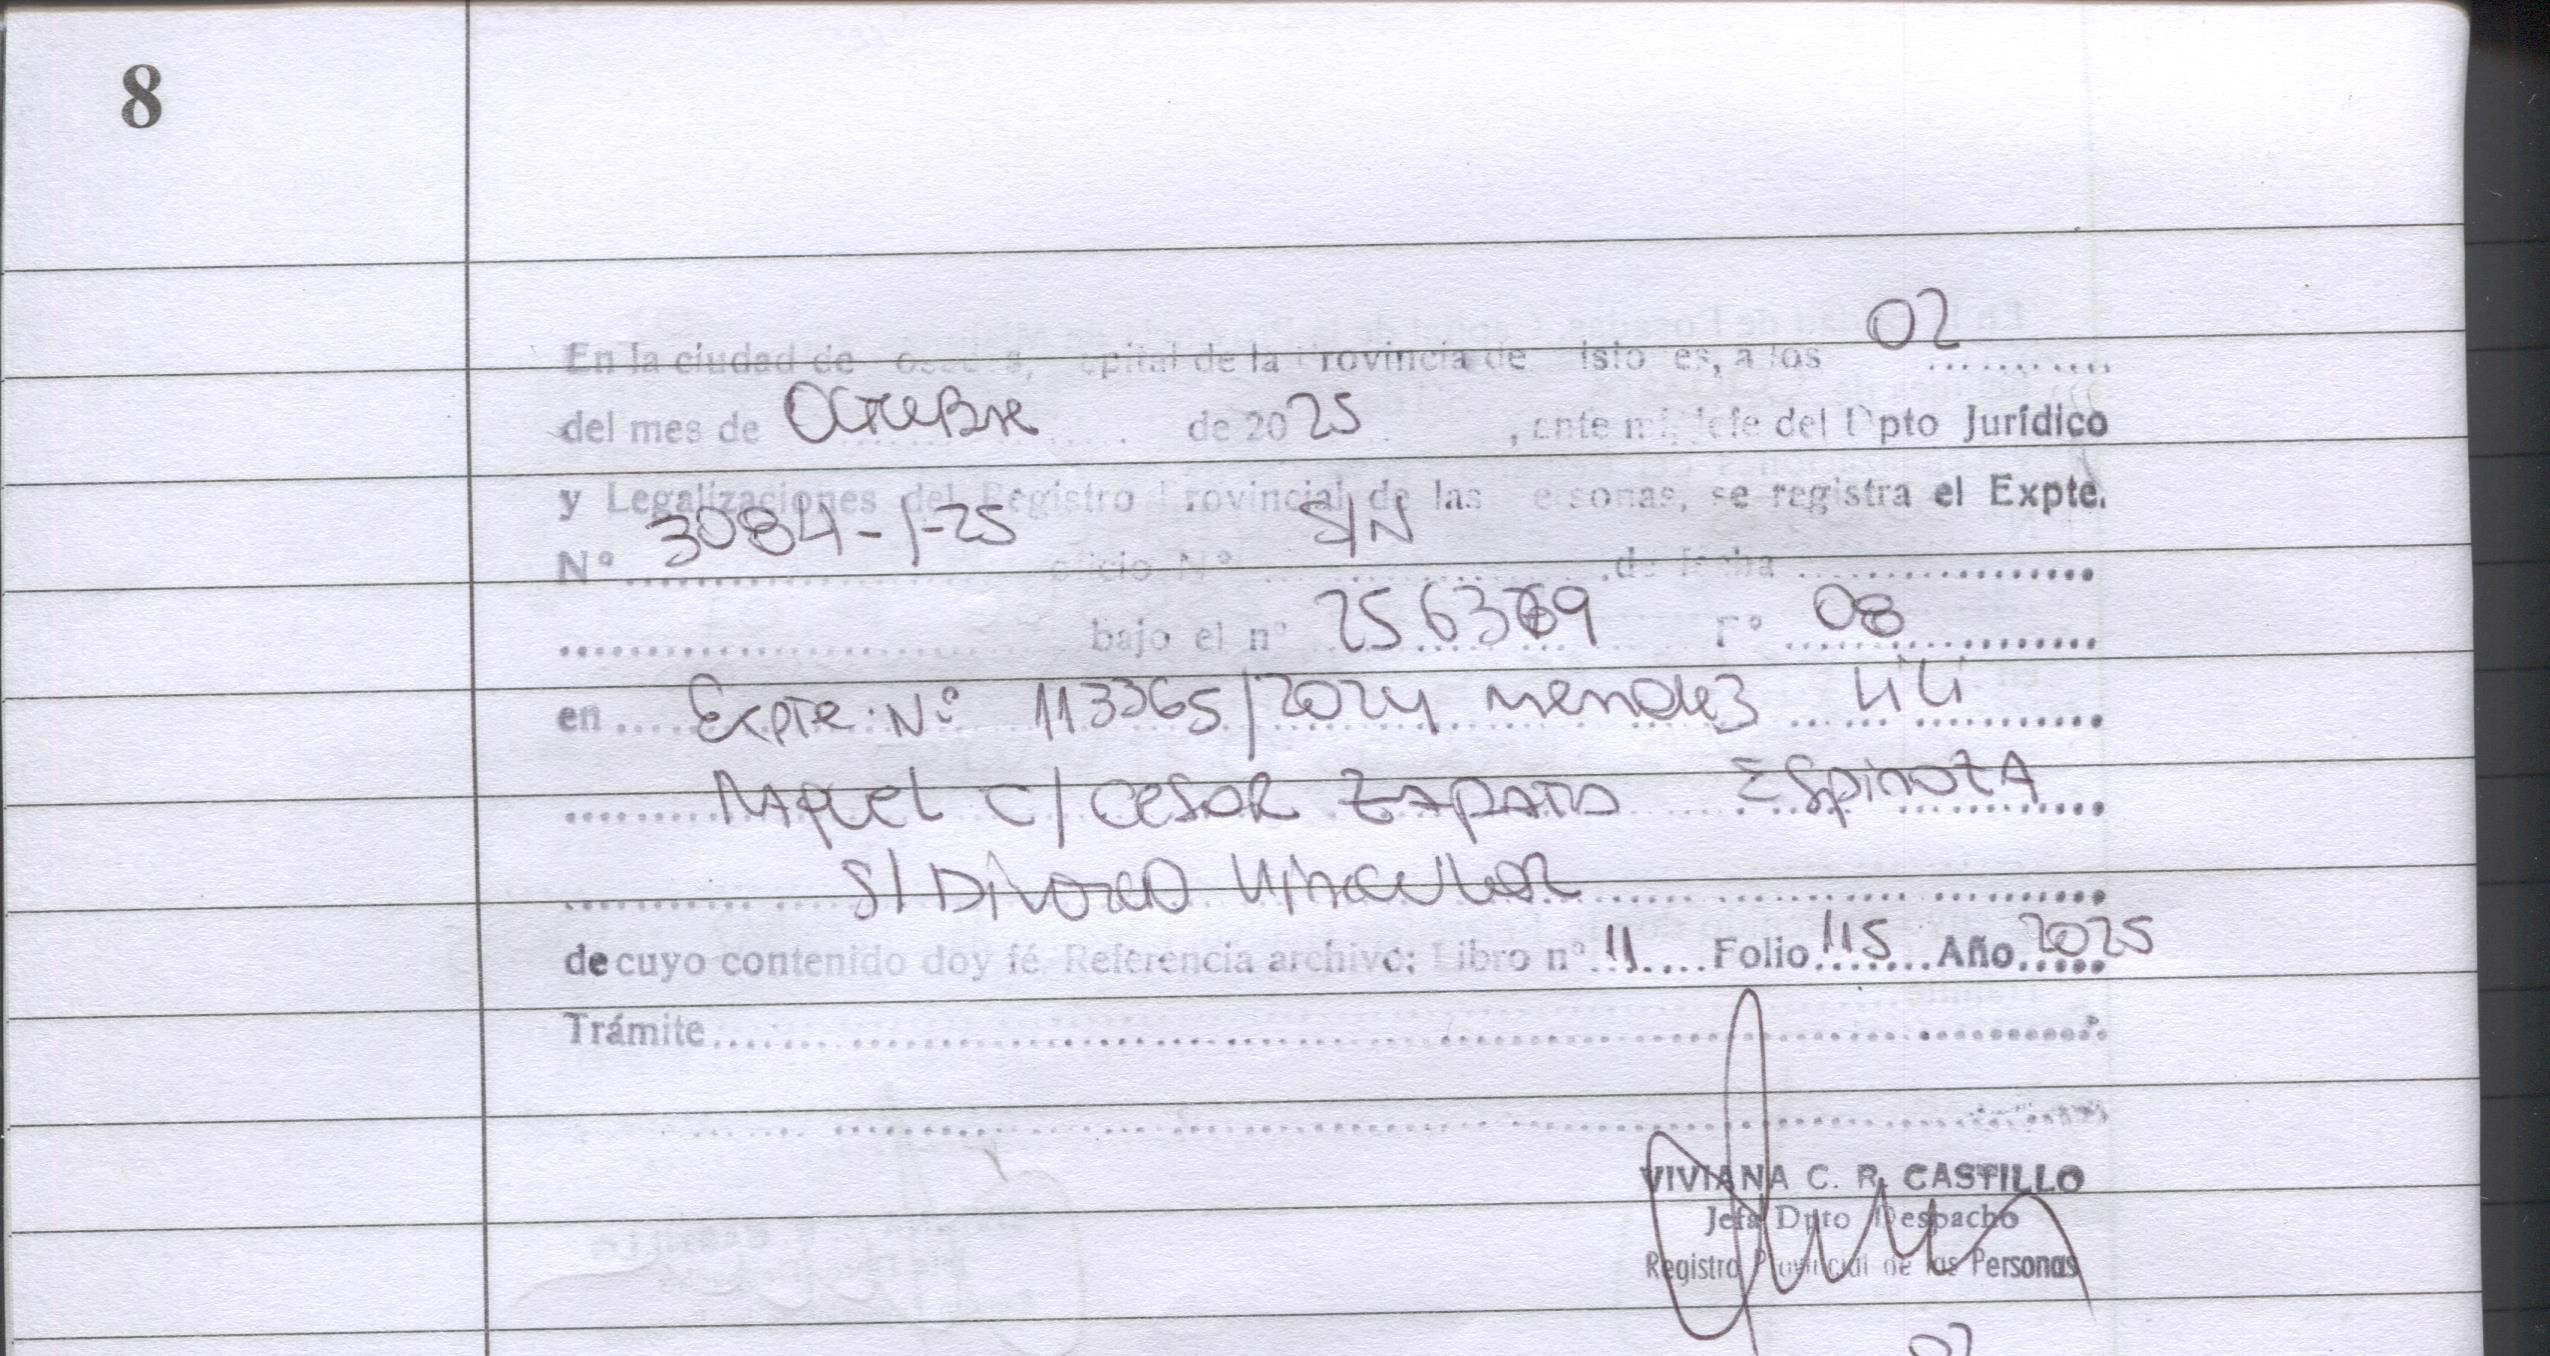 8
En la ciudad de Posadas, Capital de la Provincia de Misiones, a los 02
del mes de Octubre de 2025, ante mi, Jefe del Dpto Jurídico
y Legalizaciones del Registro Provincial de las Personas, se registra el Expte.
Nº 3084-1-25 oficio Nº S/N de fecha
bajo el nº Fº 08
en Expte. Nº 113365/2024 Mendez Lili
Raquel C/ Cesar Zapata Espinoza
S/ Divorcio Vincular
de cuyo contenido doy fé Referencia archivo: Libro nº 11 Folio 115 Año 2025
Trámite
VIVIANA C. R. CASTILLO
Jefa Dpto Despacho
Registro Provincial de las Personas
02